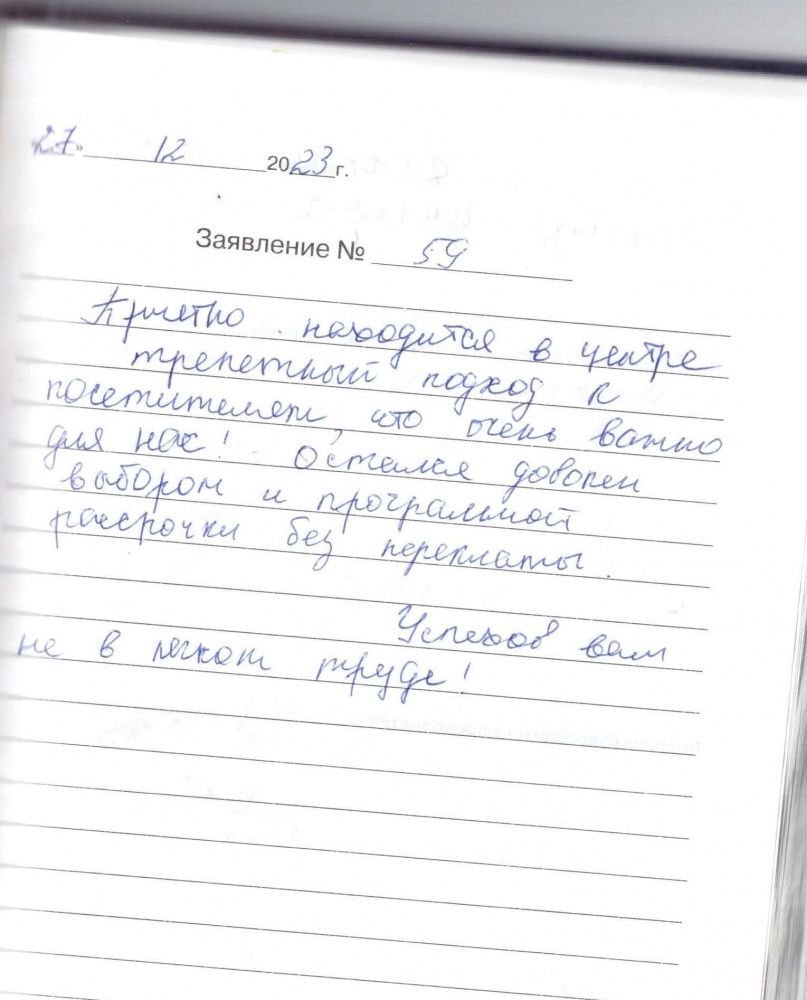 27» 12 2023 г.
Заявление № 59
Приятно находится в центре
трепетный подход к
посетителям, что очень важно
для нас! Остался доволен
выбором и программой
рассрочки без переплаты.
Успехов вам
не в легком труде!